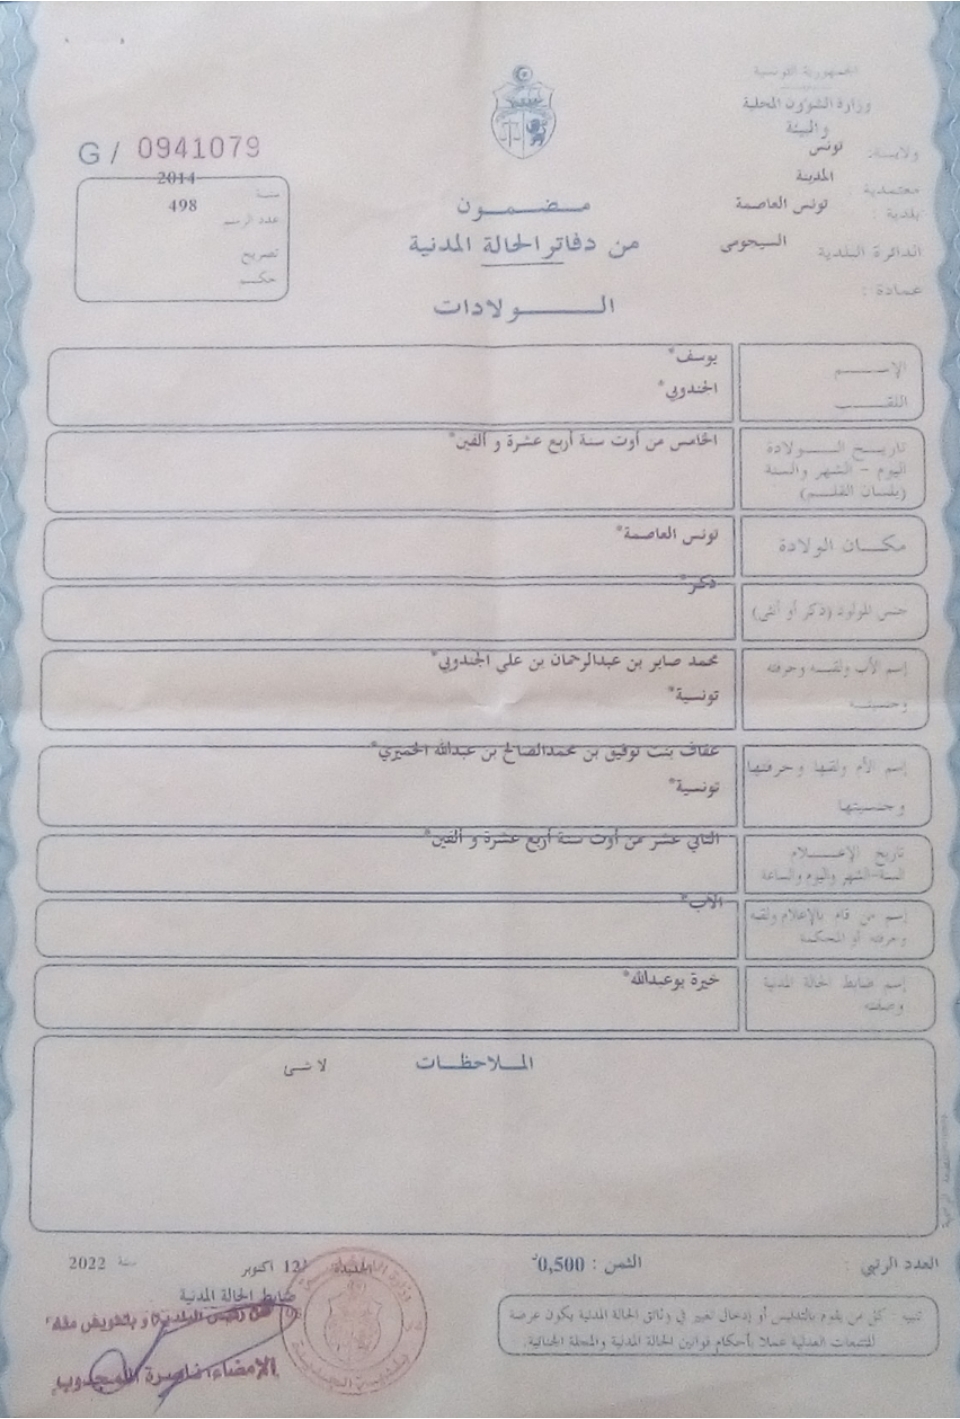 الجمهورية التونسية
وزارة الشؤون المحلية
والبيئة
ولاية: تونس
معتمدية : المدينة
بلدية : تونس العاصمة
الدائرة البلدية السيجومي
عمادة :
G / 0941079
سنة 2014
عدد الرسم 498
تصريح
حكم
مضمون
من دفاتر الحالة المدنية
الولادات
الاسم يوسف*
اللقب الجندوبي*
تاريخ الولادة الخامس من أوت سنة أربع عشرة و ألفين*
اليوم - الشهر والسنة
(بلسان القلم)
مكان الولادة تونس العاصمة*
جنس المولود (ذكر أو أنثى) ذكر*
إسم الأب ولقبه وحرفته محمد صابر بن عبدالرحمان بن علي الجندوبي*
وجنسيته تونسية*
إسم الأم ولقبها وحرفتها عفاف بنت توفيق بن محمدالصالح بن عبدالله الخميري*
وجنسيتها تونسية*
تاريخ الإعلام الثاني عشر من أوت سنة أربع عشرة و ألفين*
السنة-الشهر واليوم والساعة
إسم من قام بالإعلام ولقبه الأب*
وحرفته أو المحكمة
إسم ضابط الحالة المدنية خيرة بوعبدالله*
وصفته
الملاحظات لا شئ
العدد الرتبي :
الثمن : 0,500د
الجديدة 12 أكتوبر سنة 2022
ضابط الحالة المدنية
عن رئيس البلدية و بتفويض منه
الإمضاء: ناصرة المجدوب
تنبيه : كل من يقوم بالتدليس أو إدخال تغيير في وثائق الحالة المدنية يكون عرضة
للتتبعات العدلية عملا بأحكام قوانين الحالة المدنية والمجلة الجنائية.